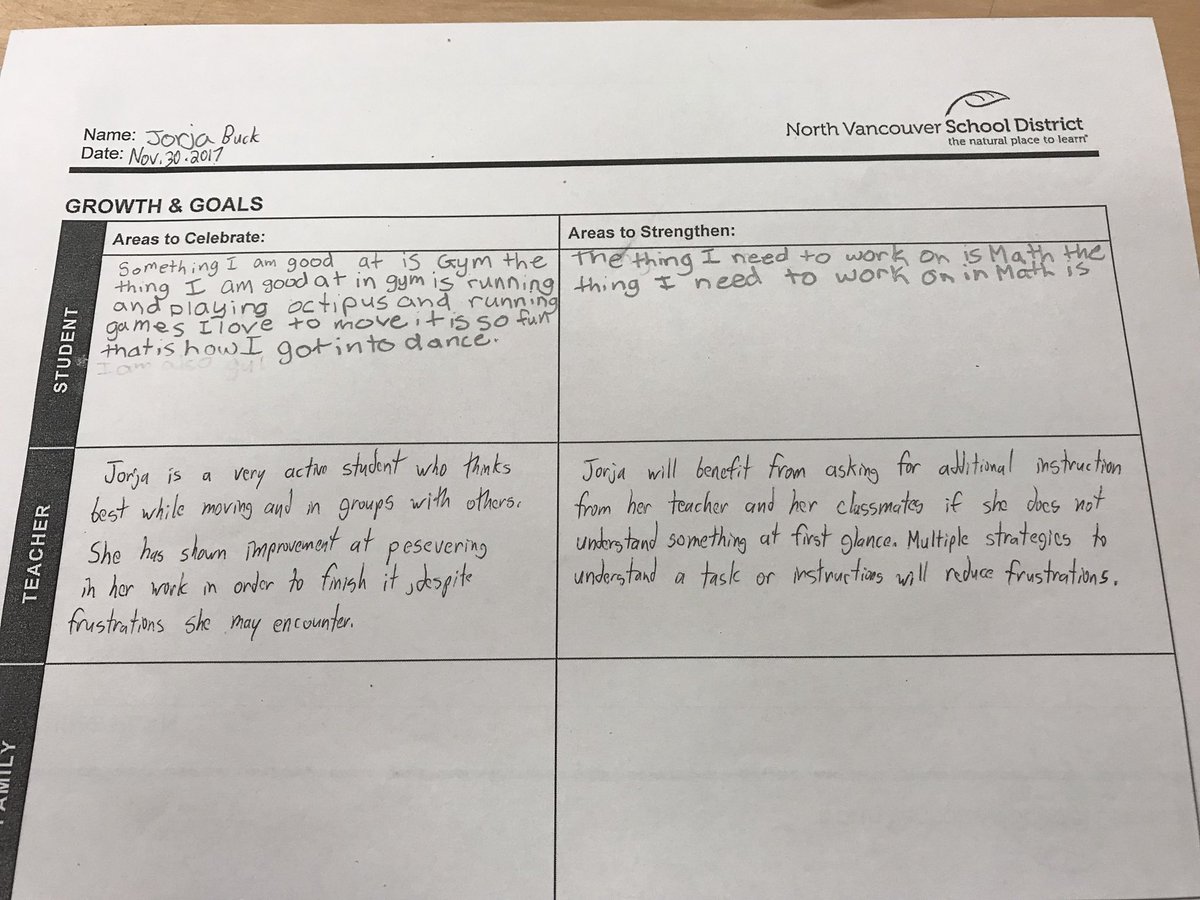 Name: Jorja Buck
Date: Nov.30.2017
North Vancouver School District
the natural place to learn
GROWTH & GOALS
STUDENT
Areas to Celebrate:
Something I am good at is Gym the
thing I am good at in gym is running
and playing octipus and running
games I love to move it is so fun
that is how I got into dance.
I am also
Areas to Strengthen:
The thing I need to work on is Math the
thing I need to work on in Math is
TEACHER
Jorja is a very active student who thinks
best while moving and in groups with others.
She has shown improvement at pesevering
in her work in order to finish it, despite
frustrations she may encounter.
Jorja will benefit from asking for additional instruction
from her teacher and her classmates if she does not
understand something at first glance. Multiple strategies to
understand a task or instructions will reduce frustrations.
FAMILY